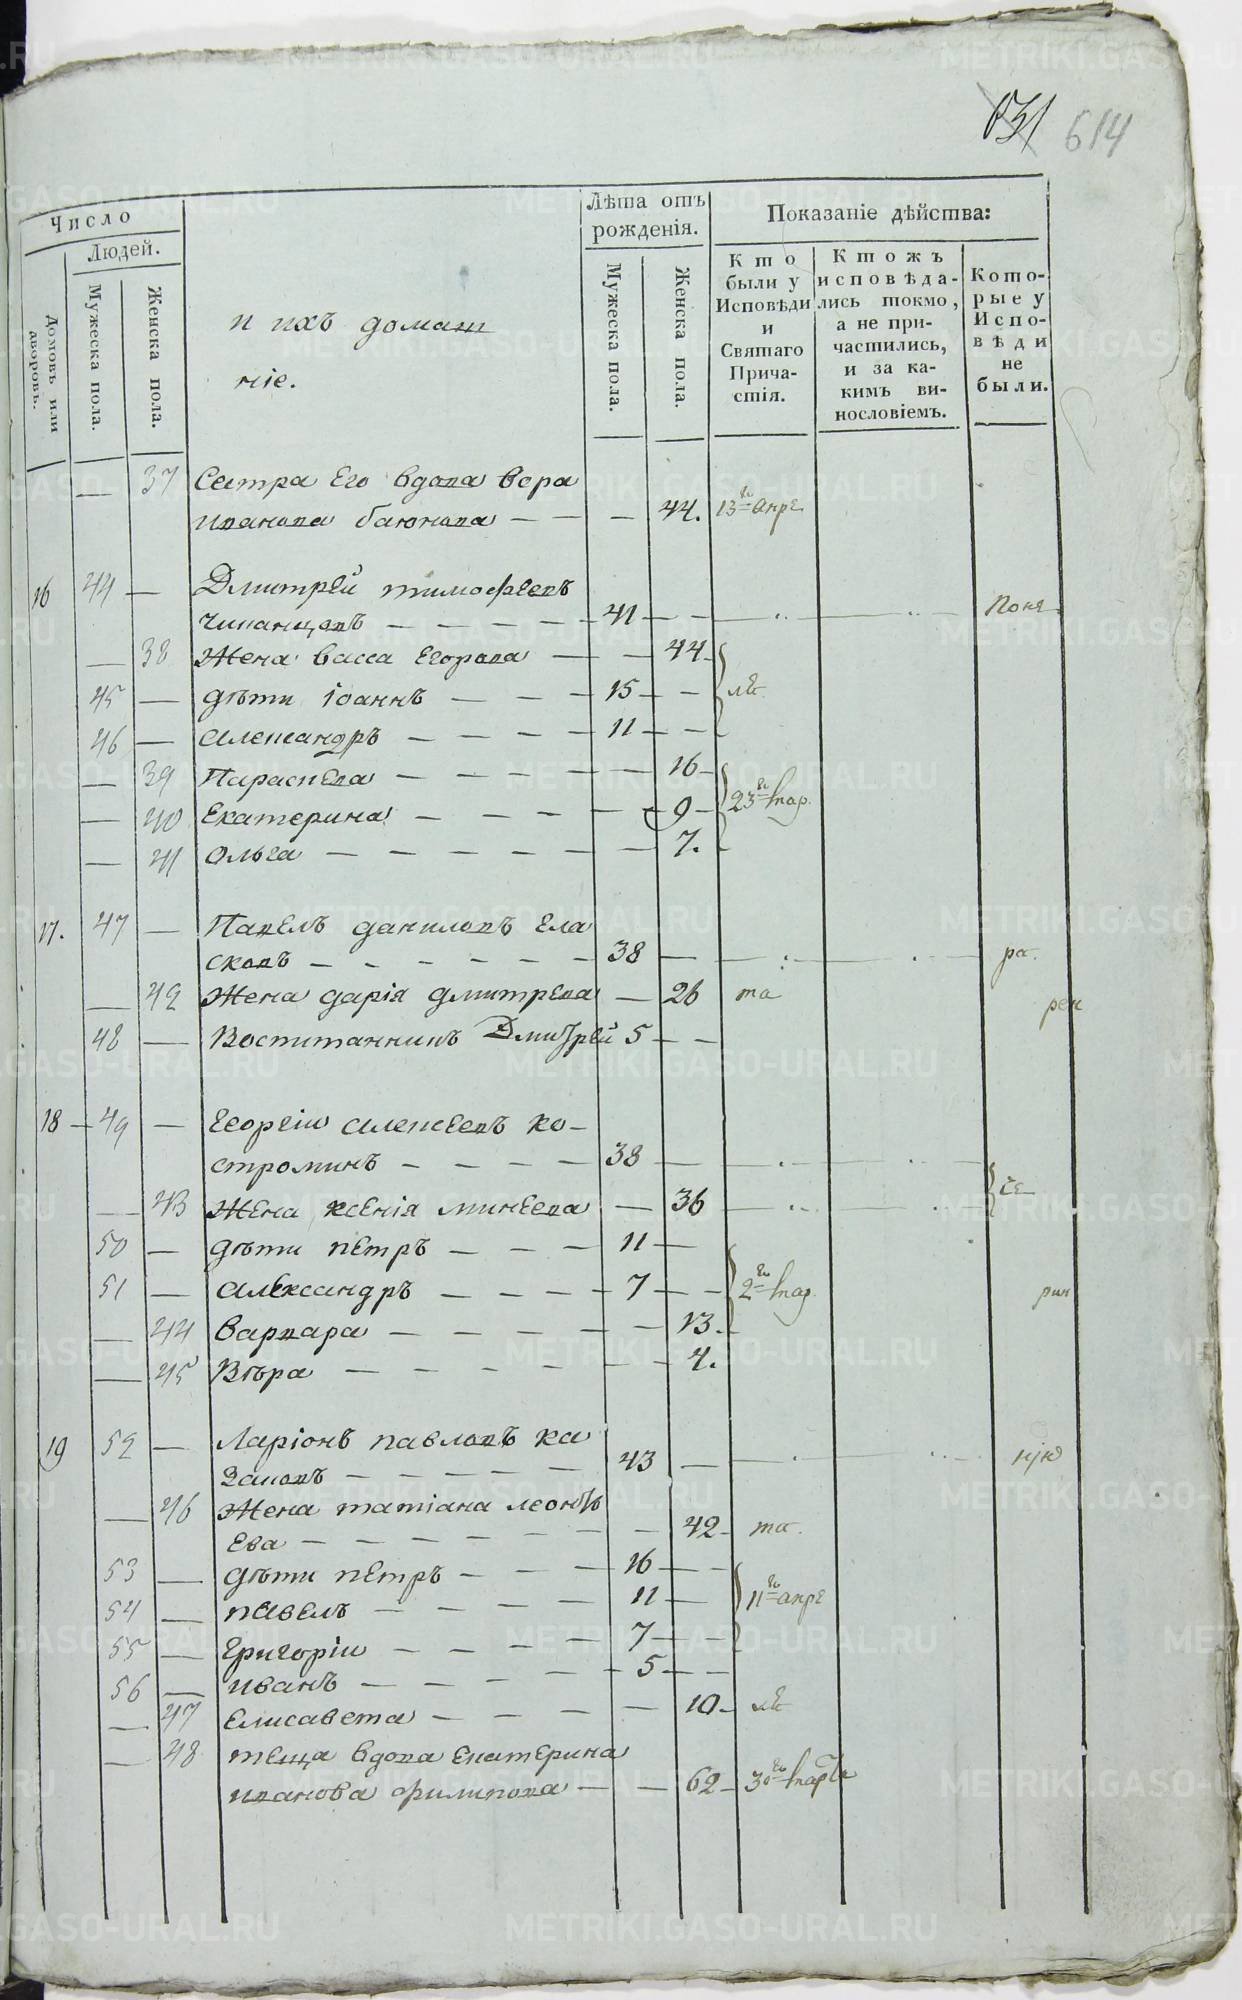 614
Число
Людей.
Домовъ или дворовъ.
Мужеска пола.
Женска пола.
и ихъ домаш
ніе.
Лѣта отъ рожденія.
Мужеска пола.
Женска пола.
Показаніе дѣйства:
Кто были у Исповѣди и Святаго Причастія.
Ктожъ исповѣдались токмо, а не причастились, и за какимъ винословіемъ.
Которые у Исповѣди не были.
— 37 Сестра Его вдова вера
иванова баюнова — — — 44. 13го апре
16 44 — Дмитрей тимофеевъ
— — — — — 41 — —
— 38 Жена васса егорова — — 44
45 — дѣти іоаннъ — — — 15 — —
46 — александръ — — — — 11 — —
— 39 Параскева — — — — — 16
— 40 Екатерина — — — — — 9 23го мар.
— 41 Ольга — — — — — — 7.
17. 47 — Павелъ даниловъ ела
сковъ — — — — — — 38 —
— 42 Жена дарія дмитрева — 26
48 — Воспитанникъ Дмитрей 5 — —
18 — 49 — Георгіи алексеевъ ко-
строминъ — — — — 38 —
— 43 Жена ксенія минеева — 36
50 — дѣти петръ — — — 11 —
51 — александръ — — — — 7 — — 2го мар.
— 44 варвара — — — — — 13.
— 45 Вѣра — — — — — — 4.
19 52 — Ларіонъ павловъ ка
заковъ — — — — — 43 —
— 46 Жена татіана леонть
ева — — — — — — — 42
53 — дѣти петръ — — — 16 — —
54 — павелъ — — — — 11 — 11го апре
55 — григоріи — — — — 7 — —
56 — иванъ — — — — 5 — —
— 47 елисавета — — — — 10
— 48 теща вдова екатерина
иванова филипова — — 62 30го марта